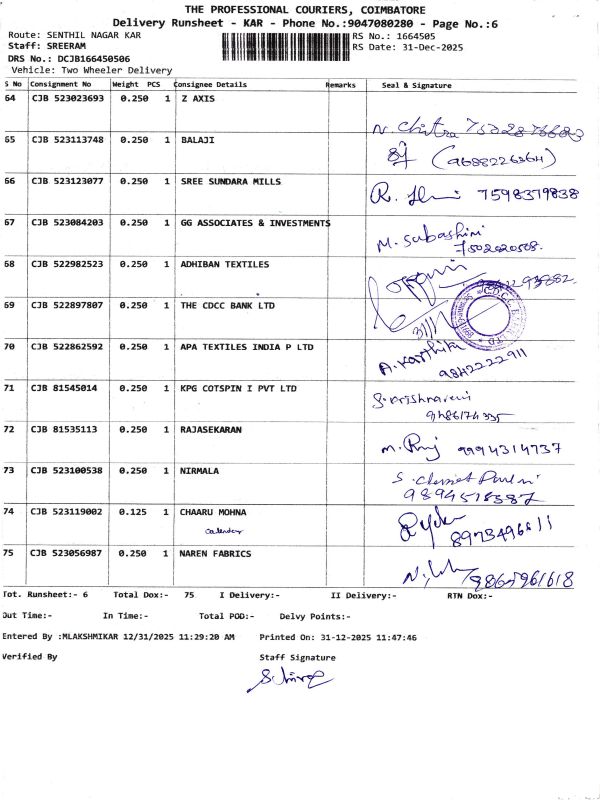 THE PROFESSIONAL COURIERS, COIMBATORE
Delivery Runsheet - KAR - Phone No.:9047080280 - Page No.:6
Route: SENTHIL NAGAR KAR RS No.: 1664505
Staff: SREERAM RS Date: 31-Dec-2025
DRS No.: DCJB166450506
Vehicle: Two Wheeler Delivery
S No Consignment No Weight PCS Consignee Details Remarks Seal & Signature
64 CJB 523023693 0.250 1 Z AXIS
N. Chitra
65 CJB 523113748 0.250 1 BALAJI
(9688226364)
66 CJB 523123077 0.250 1 SREE SUNDARA MILLS
R. 7598379838
67 CJB 523084203 0.250 1 GG ASSOCIATES & INVESTMENTS
M. Subashini
7502020508.
68 CJB 522982523 0.250 1 ADHIBAN TEXTILES
69 CJB 522897807 0.250 1 THE CDCC BANK LTD
31/11
70 CJB 522862592 0.250 1 APA TEXTILES INDIA P LTD
A. Karthika
9842222911
71 CJB 81545014 0.250 1 KPG COTSPIN I PVT LTD
S. Krishnaveni
72 CJB 81535113 0.250 1 RAJASEKARAN
M. Raj 9994314737
73 CJB 523100538 0.250 1 NIRMALA
74 CJB 523119002 0.125 1 CHAARU MOHNA
calendar
8973496811
75 CJB 523056987 0.250 1 NAREN FABRICS
9865961618
Tot. Runsheet:- 6 Total Dox:- 75 I Delivery:- II Delivery:- RTN Dox:-
Out Time:- In Time:- Total POD:- Delvy Points:-
Entered By :MLAKSHMIKAR 12/31/2025 11:29:20 AM Printed On: 31-12-2025 11:47:46
Verified By Staff Signature